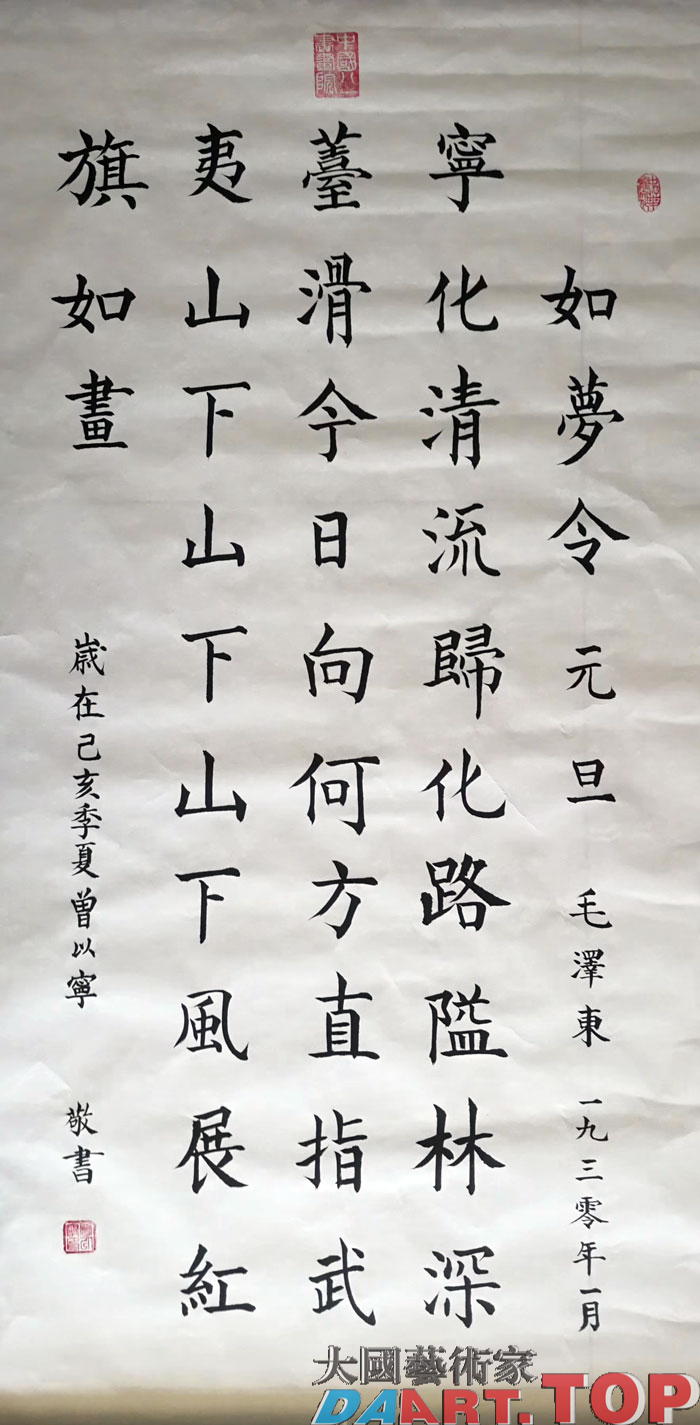 中國八一書畫院
如夢令 元旦 毛澤東 一九三零年一月
寧化清流歸化路隘林深
薹滑今日向何方直指武
夷山下山下山下風展紅
旗如畫
嵗在己亥季夏曾以寧 敬書
大國藝術家
DAART.TOP